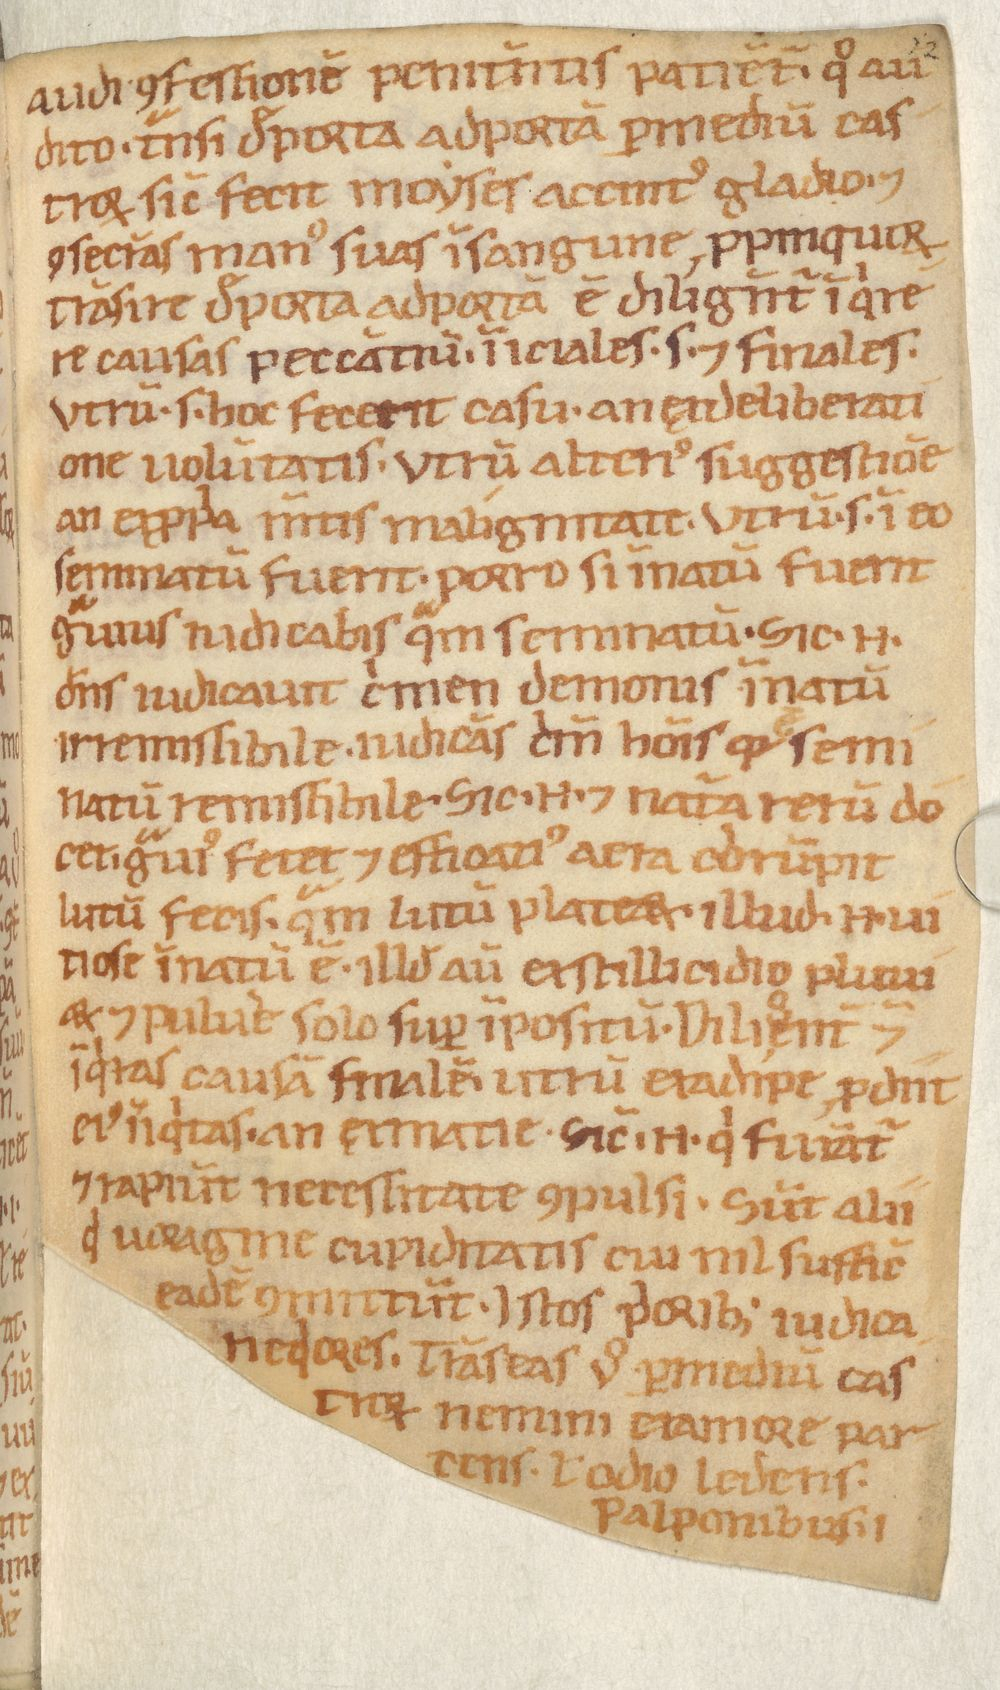 audi ꝯfessionē penitn̄tis patiēt̄. qͦ au
dito. t̄nsi d̓porta adportā ꝑmediū cas
troꝝ sic̄ fecit moẏses accintꝰ gladio. ⁊
ꝯsec̄ras manꝰ suas īsanguine, ppinquoꝝ
trāsire d̓porta adportā ē dilign̄t̄ īq̇re
re causas peccātiū. īiciales. s. ⁊ finales.
Vtrū. s. hoc fecerit casu. an exdeliberati
one uolūtatis. Vtrū alteriꝰ suggestiōe
an exppͥa m̄tis malignitate. Vtrū. s. ī eo
seminatū fuerit. porro si īnatū fuerit
gͣuius iudicabis qͣm seminatū. Sic. N.
dn̄s iudicauit cͥmen demonis īnatū
irremissibile. iudicās cͥm̄ hoīs semi
natū remissibile. Sic. N. ⁊ nat̄a rerū do
cet. gͣuiꝰ fetet ⁊ efficatiꝰ aera corrūpit
lutū fecis. qͣm lutū plateaꝝ. illud. N. ui
tiose īnatū ē. illd̓ aū exstillicidio pluui
aꝝ ⁊ puluere solo suꝑ īpositū. Diligent̄ ⁊
īq̇ras causā finalē utrū exadipe, ꝑdīt
eiꝰ īiq̇tas. an exmatie. Sic̄. N. q̇ furāt̄
⁊ rapiūt necessitate ꝯpulsi. Sūt alii
q̇ uoragine cupiditatis cui nil suffic̄
eadē ꝯmittūt. Istos pͥoribꝫ iudica
neq̇ores. Trāseas ūͦ ꝑmediū cas
troꝝ nemini examore par
cens. ɫ odio ledens.
Palponibus. i